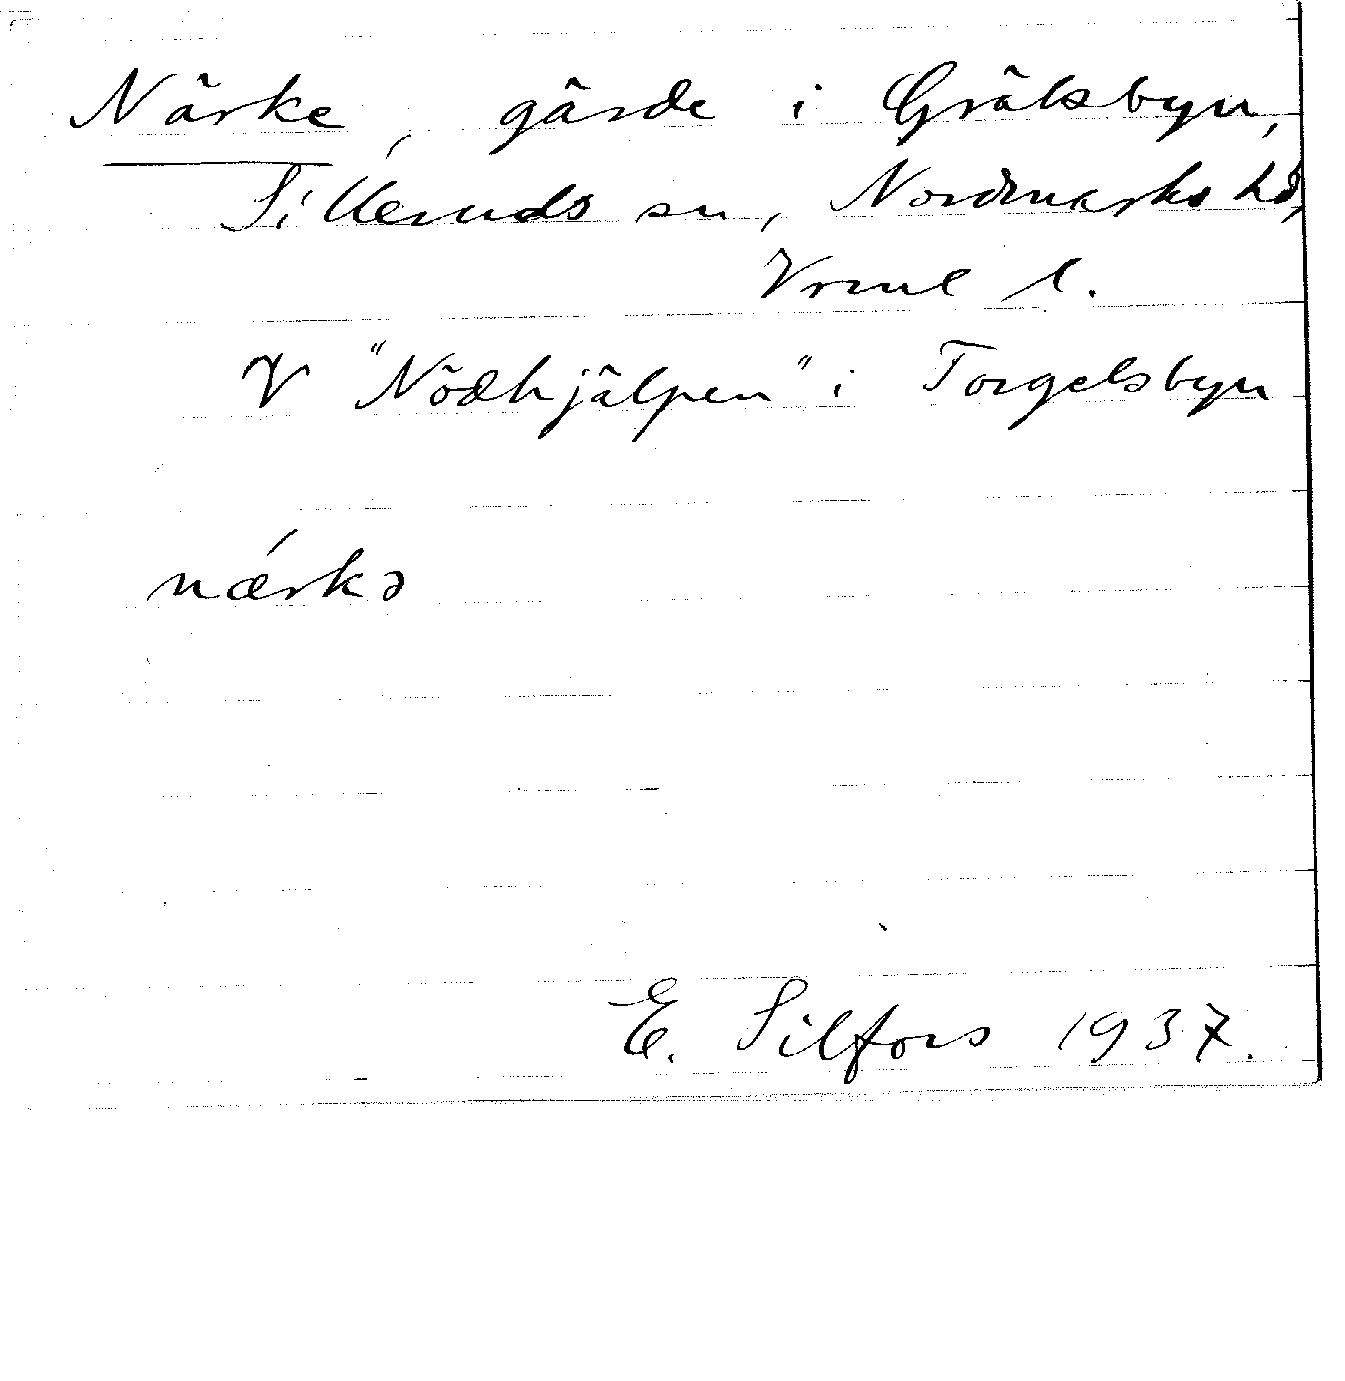 Närke, gärde i Gräsbyn,
Silleruds sn, Nordmarks hd,
Vrml l.
V "Nödhjälpen" i Torgelsbyn
nǽrkə
E. Silfors 1937.